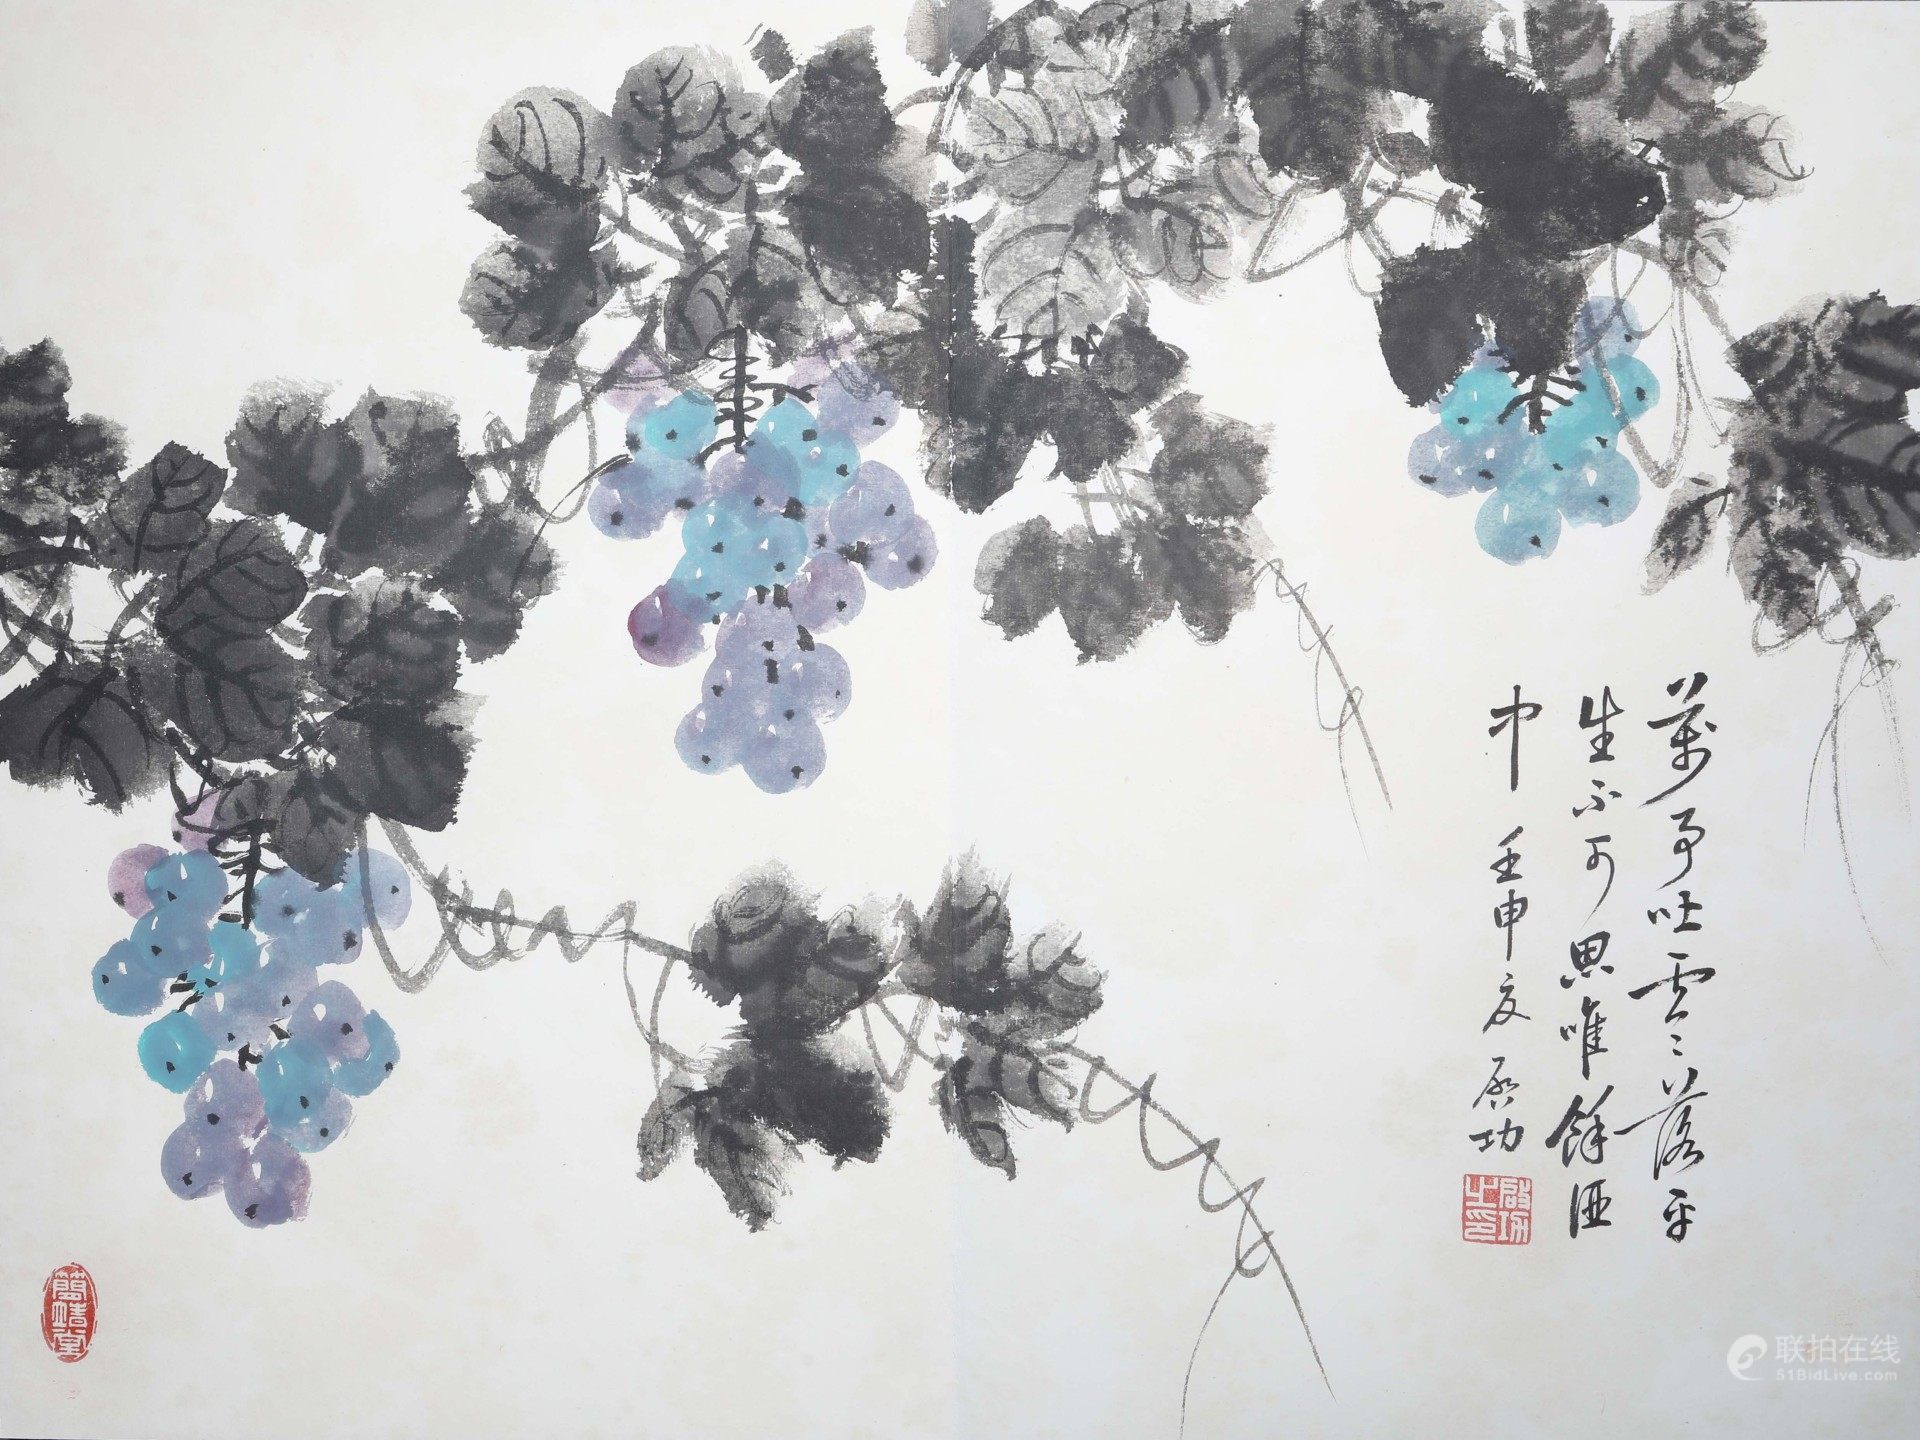 萬事皆零落平
生不可思唯餘酒
中 壬申夏 启功
啟功之印
簡靖堂
联拍在线
51BidLive.com